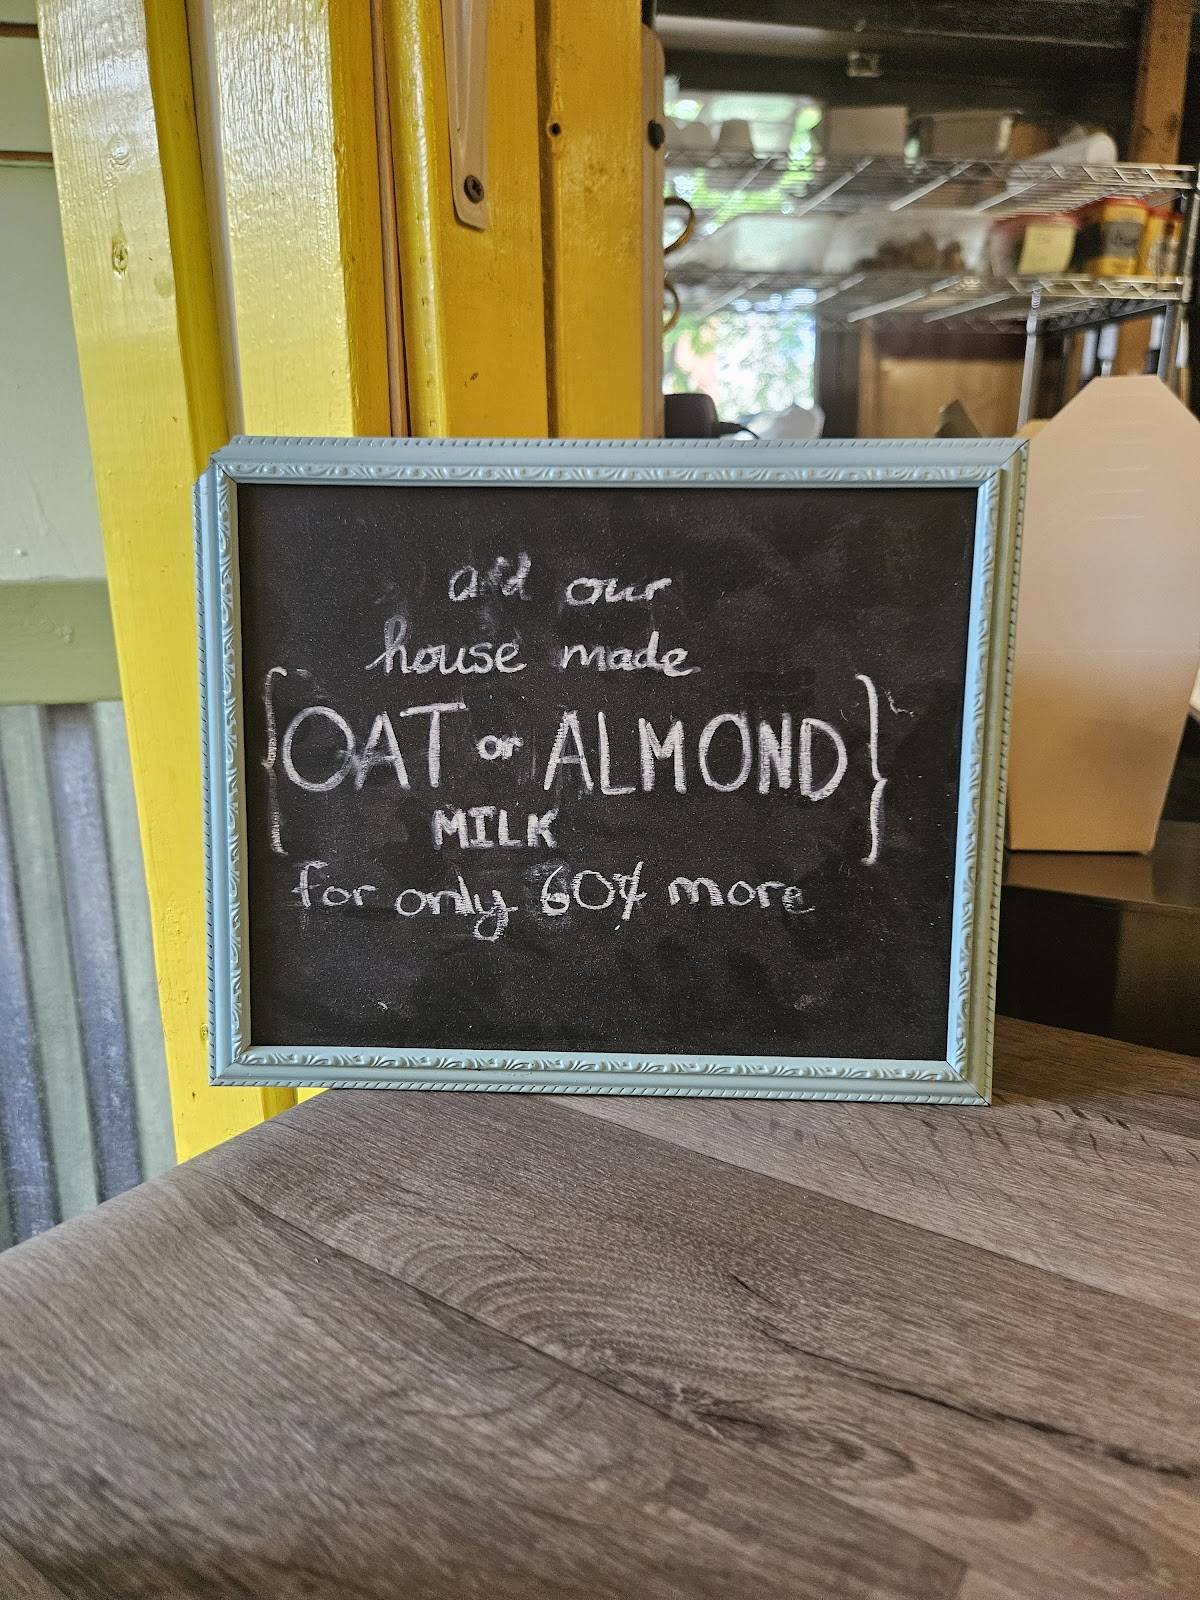 add our
house made
{OAT or ALMOND}
MILK
for only 60¢ more